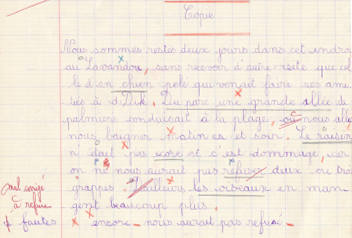 Copie
Nous sommes restés deux jours dans cet endroi
au Lavandou, sans recevoir d'autre visite que cel
le d'un chien pelé qui venait faire ses ami
tiés à Dick. du parc une grande allée de
palmiers conduisait à la plage, où nous alli
nous baigner matin et soir. Le raisin
n'était pas et c'est dommage, car
on ne nous aurait pas refusé deux ou troi
grappes. D'ailleurs les oiseaux en man
gent beaucoup plus.
mal corrigé
à refaire
fautes encore nous aurait pas refusé